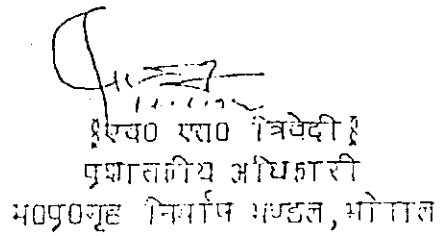 §एच0 एस0 त्रिवेदी§
प्रशासकीय अधिकारी
म0प्र0गृह निर्माण मण्डल,भोपाल